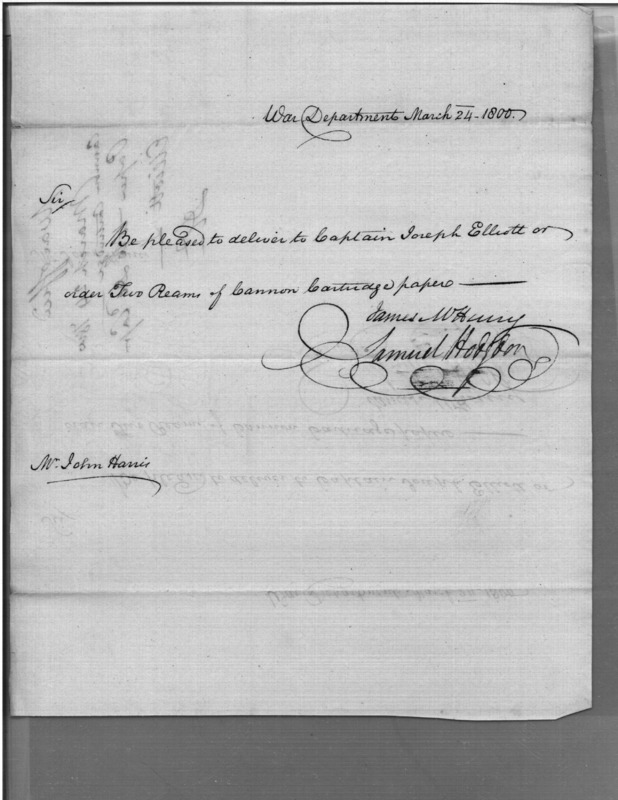 War Department March 24-1800.
Sir,
Be pleased to deliver to Captain Joseph Elliott or
order Two Reams of Cannon Cartridge paper
James McHenry
Samuel Hodgdon
Mr. John Harris